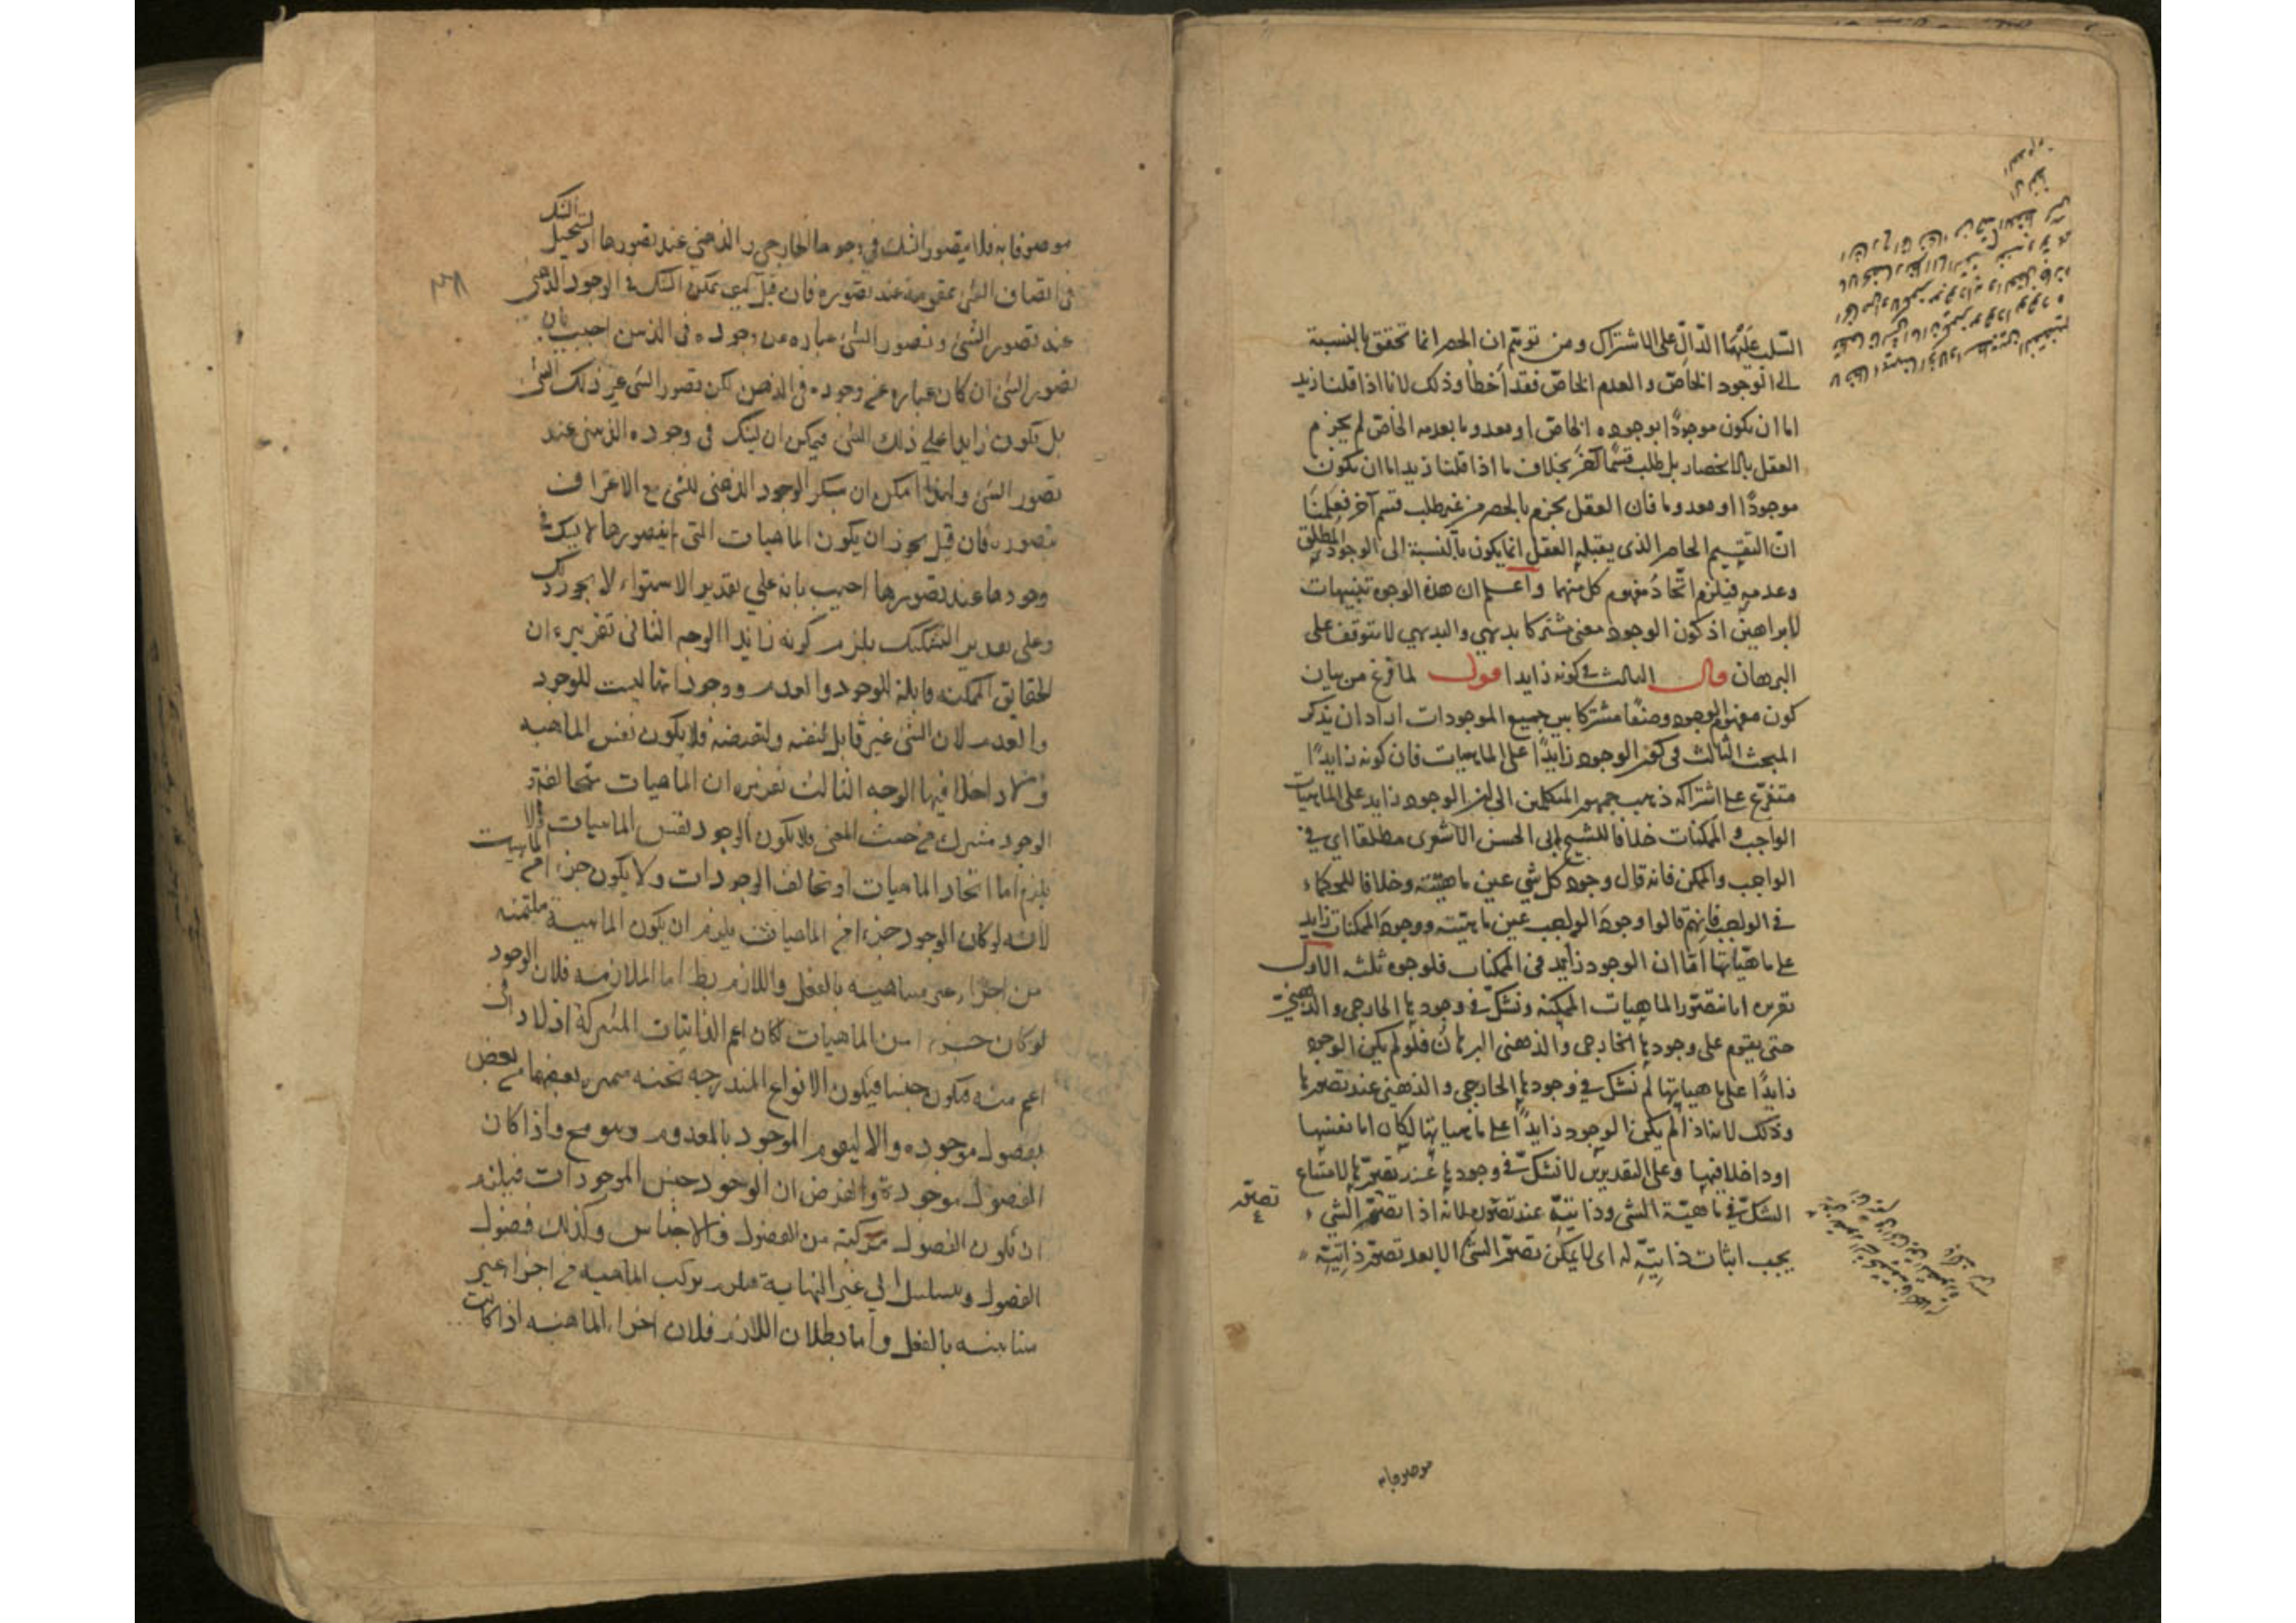 السلب عليهما الدال على الاشتراك ومن توهم ان الحصر انما تحقق بالنسبة
الى الوجود الخاص والعدم الخاص فقد أخطأ وذلك لانا اذا قلنا زيد
اما ان يكون موجودًا بوجوده الخاص او معدوما بعدمه الخاص لم يجزم
العقل بالانحصار بل طلب قسمًا آخر بخلاف ما اذا قلنا زيد اما ان يكون
موجودًا او معدوما فان العقل يجزم بالحصر من غير طلب قسم آخر فعلمنا
ان التقسيم الحاصر الذى يقبله العقل انما يكون بالنسبة الى الوجود المطلق
وعدمه فيلزم اتحاد مفهوم كل منهما واعلم ان هذه الوجوه تنبيهات
لا براهين اذ كون الوجود معنى مشتركا بديهي والبديهي لا يتوقف على
البرهان قال الثالث فى كونه زايدا اقول لما فرغ من بيان
كون مفهوم الوجود وصفًا مشتركا بين جميع الموجودات اراد ان يذكر
المبحث الثالث فى كون الوجود زايدًا على الماهيات فان كونه زايدًا
متفرع على اشتراكه ذهب جمهور المتكلمين الى ان الوجود زايد على الماهيات
الواجب والممكنات خلافا للشيخ ابى الحسن الاشعرى مطلقا اى فى
الواجب والممكن فانه قال وجود كل شي عين ماهيته وخلافا للحكماء
فى الواجب فانهم قالوا وجود الواجب عين ماهيته ووجود الممكنات زايد
على ماهياتها اما ان الوجود زايد فى الممكنات فلوجوه ثلثه الاول
تقريره انا نتصور الماهيات الممكنه ونشك فى وجودها الخارجى والذهنى
حتى يقوم على وجودها الخارجى والذهنى البرهان فلو لم يكن الوجود
زايدًا على ماهياتها لم نشك فى وجودها الخارجى والذهنى عند تصورها
وذلك لانه اذا لم يكن الوجود زايدًا على ماهياتها لكان اما نفسها
او داخلا فيها وعلى التقديرين لا نشك فى وجودها عند تصورها لامتناع
الشك فى ماهية الشى وذاتيته عند تصوره لانه اذا تصور الشى
يجب اثبات ذاتيته له اى لا يمكن تصور الشئ الا بعد تصور ذاتيته
موصوفا به
موصوفا به فلا يتصور الشك فى وجودها الخارجى والذهنى عند تصورها اذ يستحيل الشك
فى اتصاف الشئ بمقومه عند تصوره فان قيل كيف يمكن الشك فى الوجود الذهنى
عند تصور الشئ وتصور الشئ عباره عن وجوده فى الذهن اجيب بان
تصور الشئ ان كان عبارة عن وجوده فى الذهن لكن تصور الشئ غير ذلك الشئ
بل يكون زايدا على ذلك الشئ فيمكن ان يشك فى وجوده الذهنى عند
تصور الشئ ولهذا امكن ان ينكر الوجود الذهنى للشئ مع الاعتراف
بتصوره فان قيل يجوز ان يكون الماهيات التى لم نتصورها لا يشك فى
وجودها عند تصورها اجيب بانه على تقدير الاستواء لا يجوز ذلك
وعلى تقدير التشكيك يلزم كونه زايدا الوجه الثانى تقريره ان
الحقايق الممكنه قابلة للوجود والعدم ووجوداتها ليست للوجود
والعدم لان الشئ غير قابل لنفسه ولنقيضه فلا يكون نفس الماهيه
ولا داخلا فيها الوجه الثالث تقريره ان الماهيات متخالفة و
الوجود مشترك من حيث المعنى فلا يكون الوجود نفس الماهيات والا
يلزم اما اتحاد الماهيات او تخالف الوجودات ولا يكون جزءا من الماهيات
لانه لو كان الوجود جزءا من الماهيات يلزم ان يكون الماهية ملتئمه
من اجزاء غير متناهيه بالفعل واللازم بط اما الملازمه فلان الوجود
لو كان جزءا من الماهيات كان اعم الذاتيات المشتركة اذ لا ذاتى
اعم منه فيكون جنسا فيكون الانواع المندرجه تحته متميزة بعضها من بعض
بفصول موجوده والا ليقوم الموجود بالمعدوم وهو مح واذا كان
الفصول موجودة والفرض ان الوجود جنس الموجودات فيلزم
ان تكون الفصول مركبة من الفصول والاجناس وكذلك فصول
الفصول ويتسلسل الى غير النهاية فيلزم تركب الماهيه من اجزاء غير
متناهيه بالفعل واما بطلان اللازم فلان اجزاء الماهيه اذا كانت